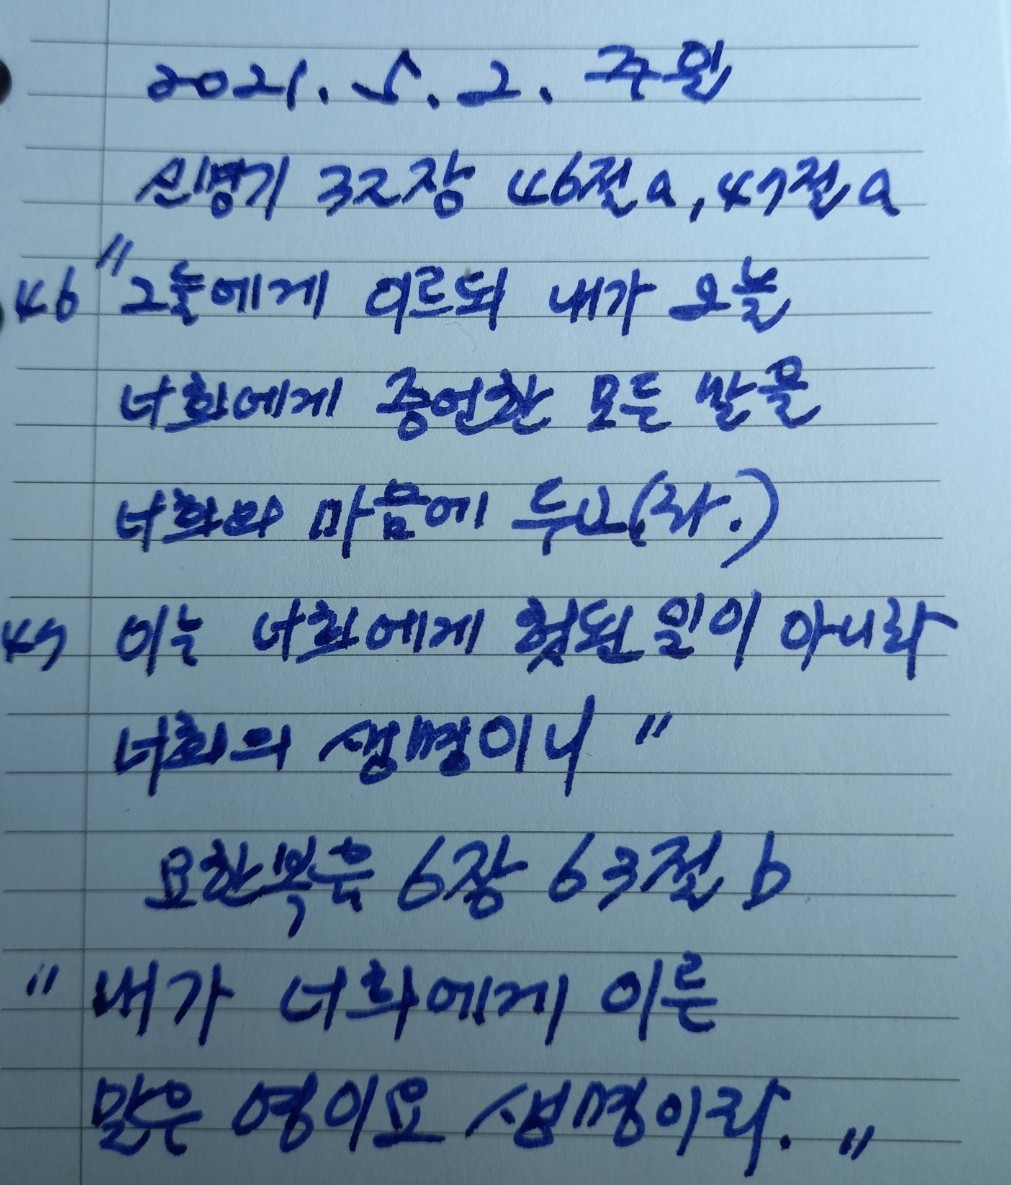 2021. 5. 2. 주일
신명기 32장 46절a, 47절a
46 "그들에게 이르되 내가 오늘
너희에게 증언한 모든 말을
너희의 마음에 두고(라.)
47 이는 너희에게 헛된 일이 아니라
너희의 생명이니"
요한복음 6장 63절 b
"내가 너희에게 이른
말은 영이요 생명이라."